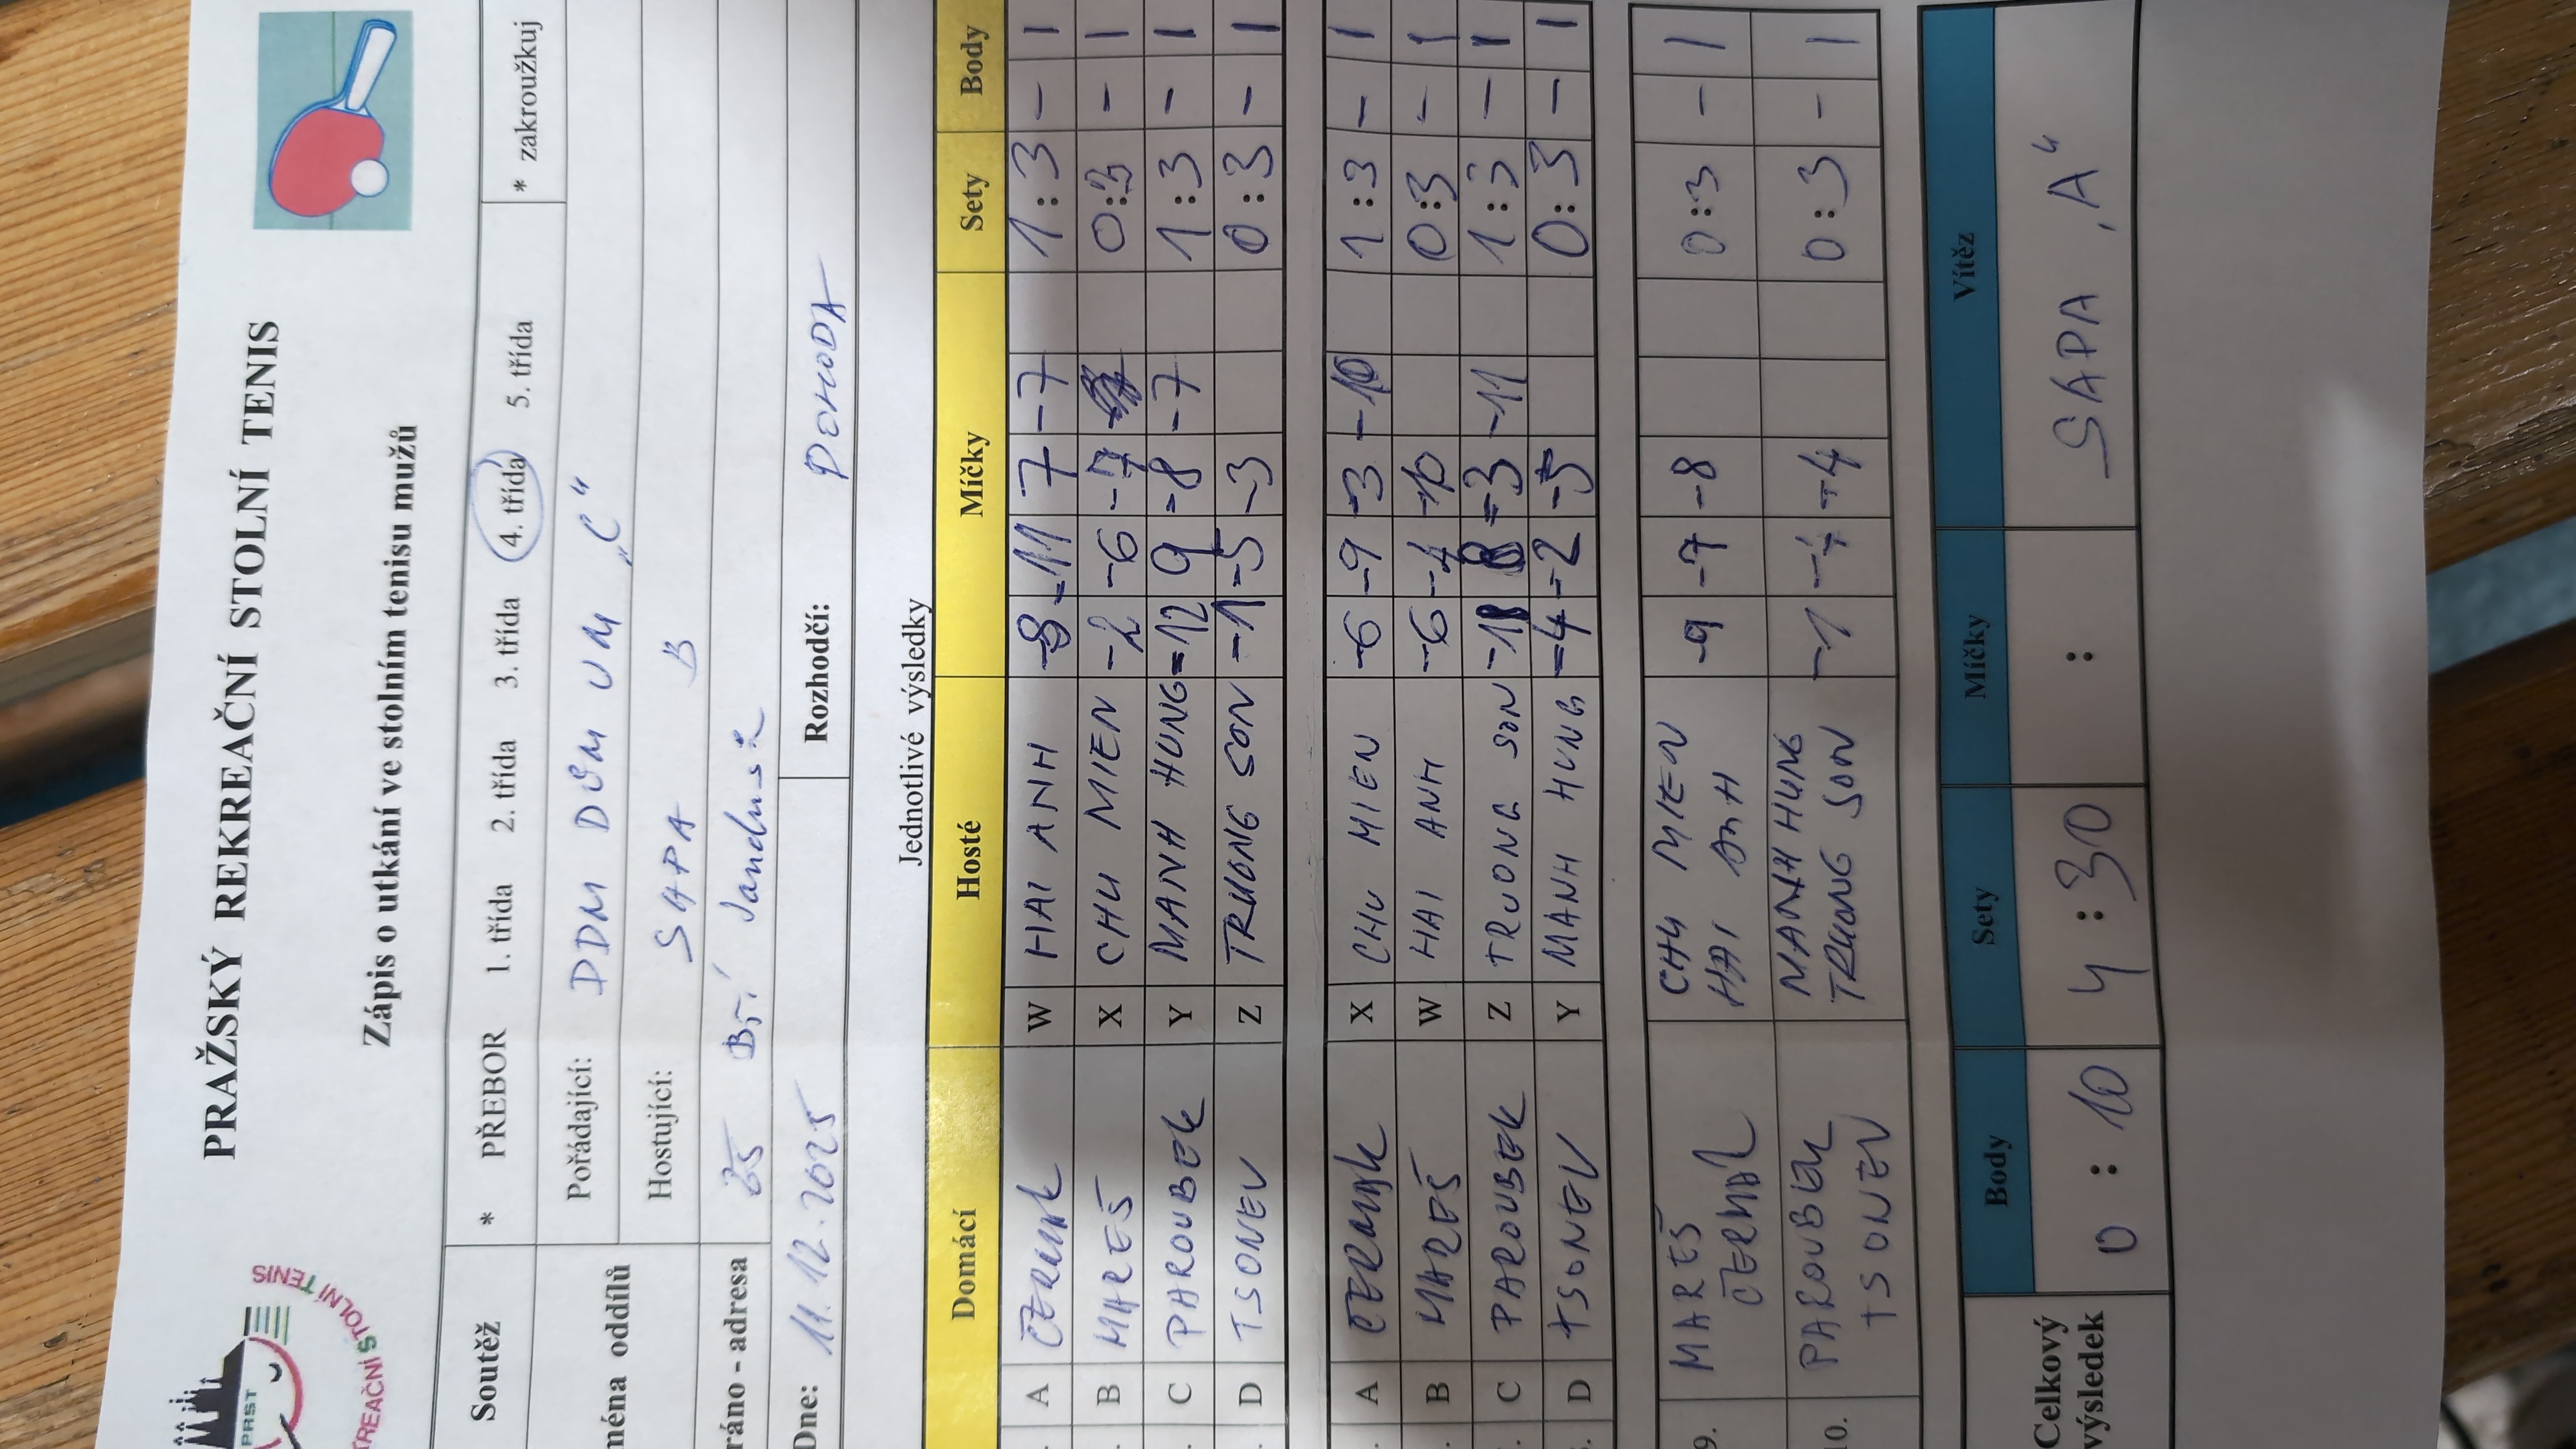 PRAŽSKÝ REKREAČNÍ STOLNÍ TENIS
Zápis o utkání ve stolním tenisu mužů
PRST
REAČNÍ STOLNÍ TENIS
Soutěž * PŘEBOR 1. třída 2. třída 3. třída 4. třída 5. třída * zakroužkuj
ména oddílů Pořádající: DDM DŮM UM „C“
Hostující: SAPA B
ráno - adresa Bří
Dne: 11.12.2025 Rozhodčí: POHODA
Jednotlivé výsledky
Domácí Hosté Míčky Sety Body
A ČERMÁK W HAI ANH -8 -11 7 -7 1:3 - 1
B MAREŠ X CHU MIEN -2 -6 -7 0:3 - 1
C PAROUBEK Y MANH HUNG -12 9 -8 -7 1:3 - 1
D TSONEV Z TRUONG SON -1 -5 -3 0:3 - 1
A ČERMÁK X CHU MIEN -6 -9 -3 -10 1:3 - 1
B MAREŠ W HAI ANH -6 -4 -10 0:3 - 1
C PAROUBEK Z TRUONG SON 8 -3 -11 1:3 - 1
D TSONEV Y MANH HUNG -4 -2 -5 0:3 - 1
9. MAREŠ CHU MIEN -9 -7 -8 0:3 - 1
ČERMÁK HAI ANH
10. PAROUBEK MANH HUNG -1 -4 0:3 - 1
TSONEV TRUONG SON
Celkový výsledek Body Sety Míčky Vítěz
0 : 10 4 : 30 : SAPA „A“